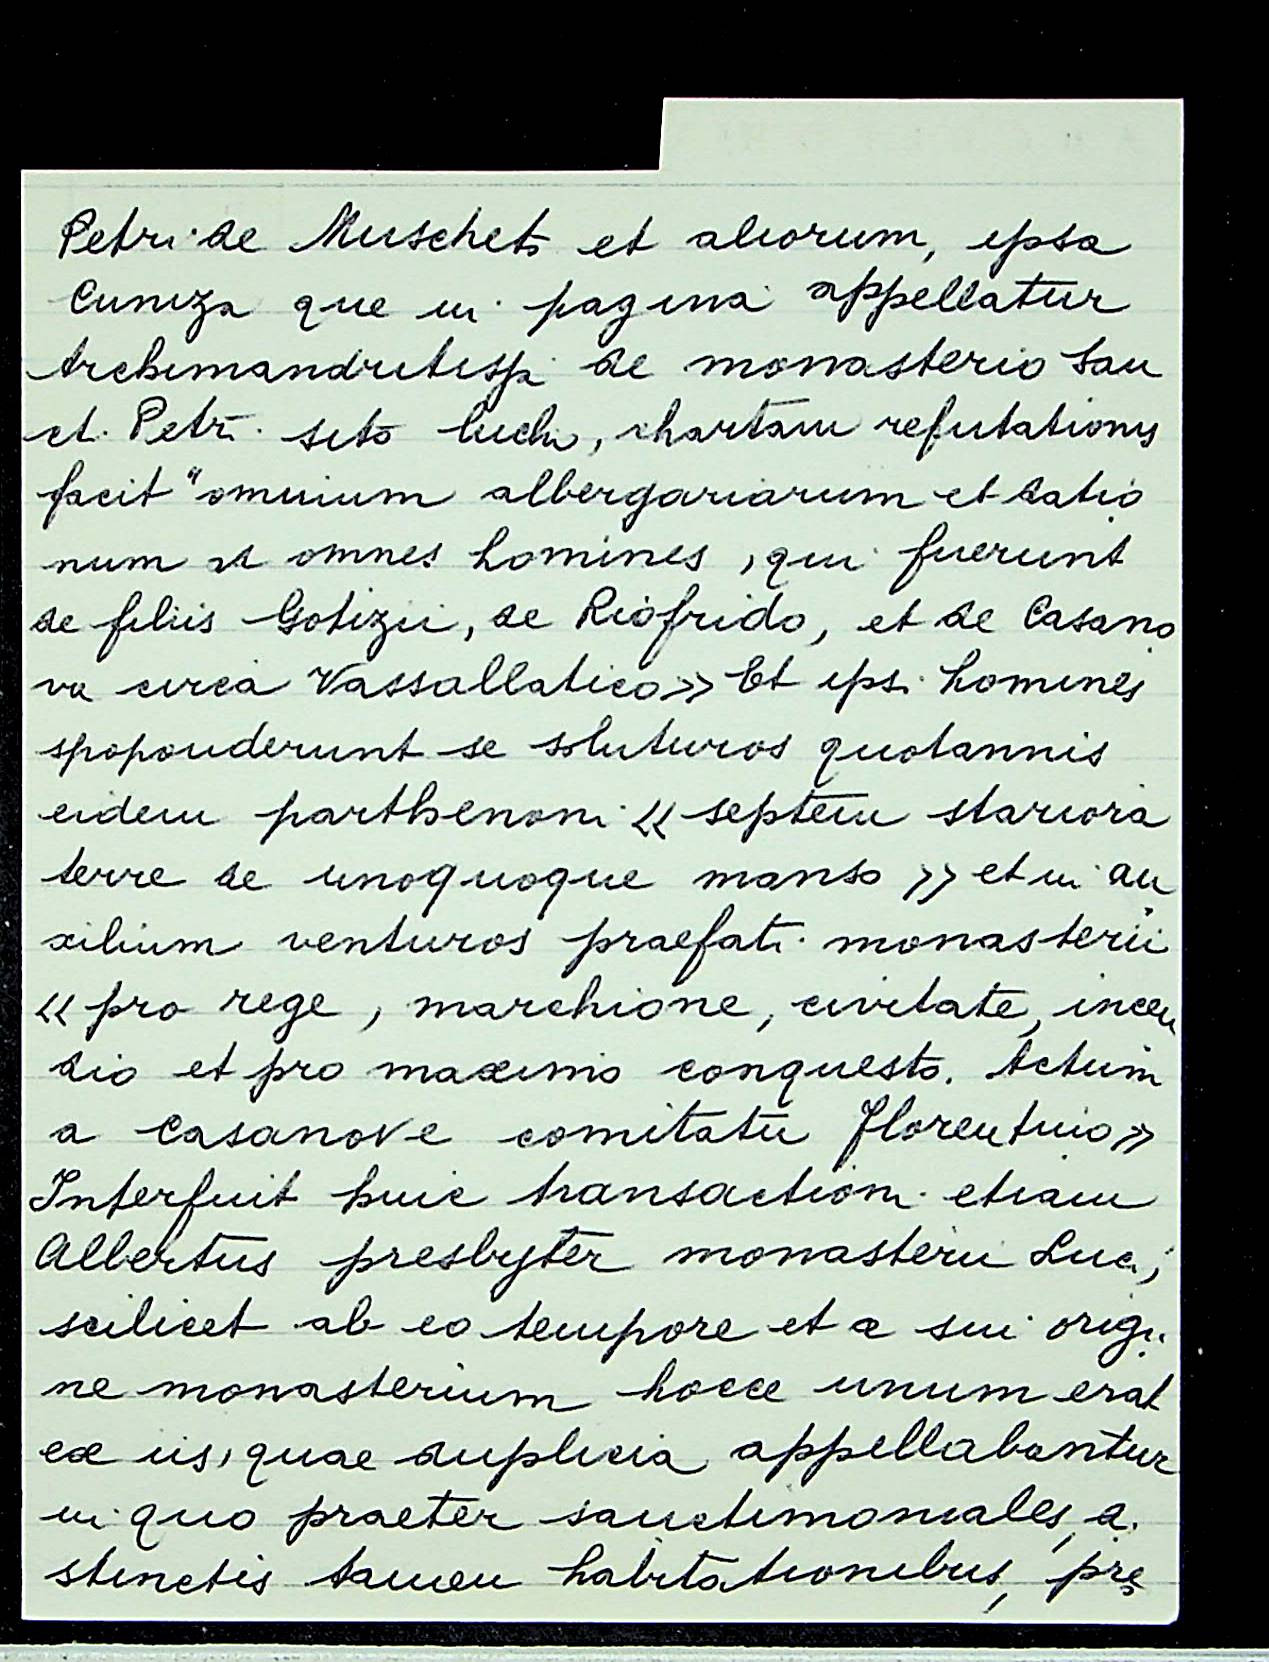 Petri de Muscheto et aliorum, ipsa
Cuniza que in pagina appellatur
Archimandritissa de monasterio San
cti Petri sito Luchi, chartam refutationis
facit "omnium albergariarum et datio
num et omnes homines, qui fuerunt
de filiis Gotizii, de Riofrido, et de Casano
va circa Vassallatico» Et ipsi homines
spoponderunt se soluturos quotannis
eidem parthenoni « septem stariora
terre de unoquoque manso » et in au
xilium venturos praefati monasterii
« pro rege, marchione, civitate, incen
dio et pro maximo conquesto. Actum
a Casanove comitatu Florentino»
Interfuit huic transactioni etiam
Albertus presbyter monasterii Luci;
scilicet ab eo tempore et a sui origi
ne monasterium hocce unum erat
ex iis, quae duplicia appellabantur
in quo praeter sanctimoniales,
stinctis tamen habitationibus, pre